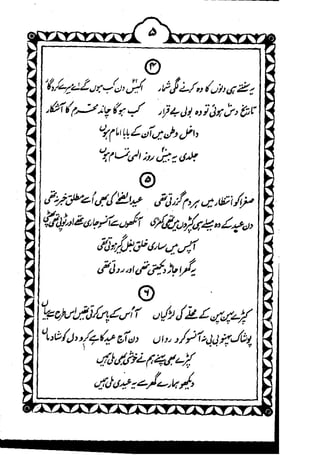 ۵
۴
یہ سنتے ہی دنوں کا وہ کرنے لگی شمار اکیس دن کب ہوں گے
تاریخ دس ہوئی تو وہ بولی بے قرار کب ہوگا چاند محرم کا آشکار
داخل وطن میں آن کے بابا امام ہوں
جلدی یہ بیس روز الٰہی تمام ہوں
۵
صغرا کو انتظار میں ہر دم گزرتی تھی عید الضحیٰ کی بھی اسے مطلق خبر نہ تھی
دن عید کے وہ میلے ہی کپڑوں میں تھی کھڑی آنکھوں سے آنسو جاری تھے اور
آپس میں ساری خلق بغل گیر ہوتی تھی
یہ گھر اجاڑ دیکھتی تھی اور روتی تھی
۶
کپڑے پہن پہن کے محلے کی لڑکیاں آ اس کے پاس کرتی تھیں اس طرح سے بیاں
پوشاک پہنو بی بی نہ آنسو کرو رواں دن آج عید کا ہے کرو دل کو شادماں
کپڑے بھی پہنے ہم نے خوشی بھی ملی ہمیں
دیکھو ہمارے گھر سے یہ عیدی ملی ہمیں